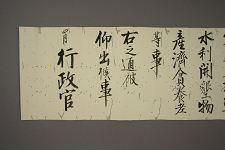 水利開墾物
産済會員養老
等事
右之通被
仰出候事
行政官